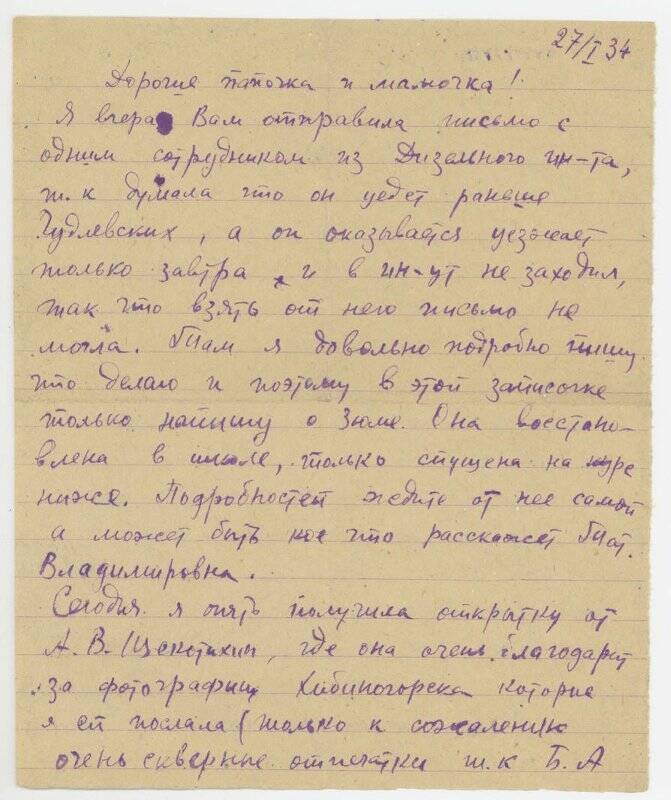 27/I 34
Дорогие папочка и мамочка!
Я вчера Вам отправила письмо с
одним сотрудником из Дизельного ин-та,
т.к думала что он уедет раньше
Чудлевских, а он оказывается уезжает
только завтра и в ин-ут не заходил,
так что взять от него письмо не
могла. Там я довольно подробно пишу
что делаю и поэтому в этой записочке
только напишу о Зюме. Она восстано-
влена в школе, только спущена на
ниже. Подробностей ждите от нее самой
а может быть кое что расскажет Тат.
Владимировна.
Сегодня я опять получила открытку от
А.В. Щекотихин, где она очень благодарит
за фотографии Хибиногорска которые
я ей послала (только к сожалению
очень скверные отпечатки т.к Б.А